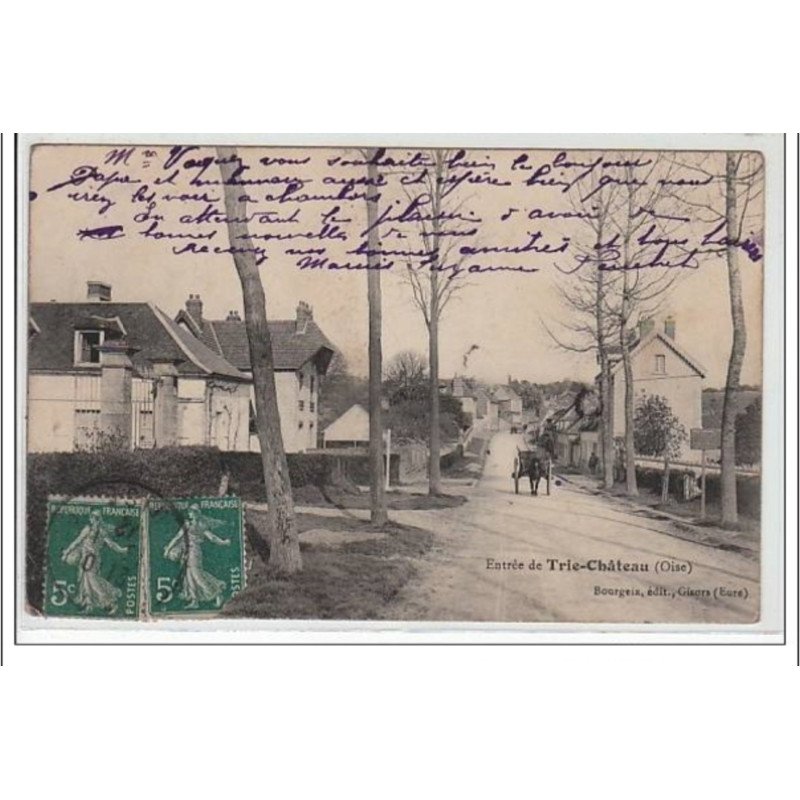 Mme Vaquez vous souhaite bien le bonjour
Papa et maman aussi et espère bien que vous
irez les voir a chambors
En attendant le plaisir d'avoir de
bonnes nouvelles de vous
recevez nos bonnes amitiés et bons baisers
Suzanne
REPUBLIQUE FRANÇAISE
5c POSTES
REPUBLIQUE FRANÇAISE
5c POSTES
Entrée de Trie-Château (Oise)
Bourgeix, édit., Gisors (Eure)